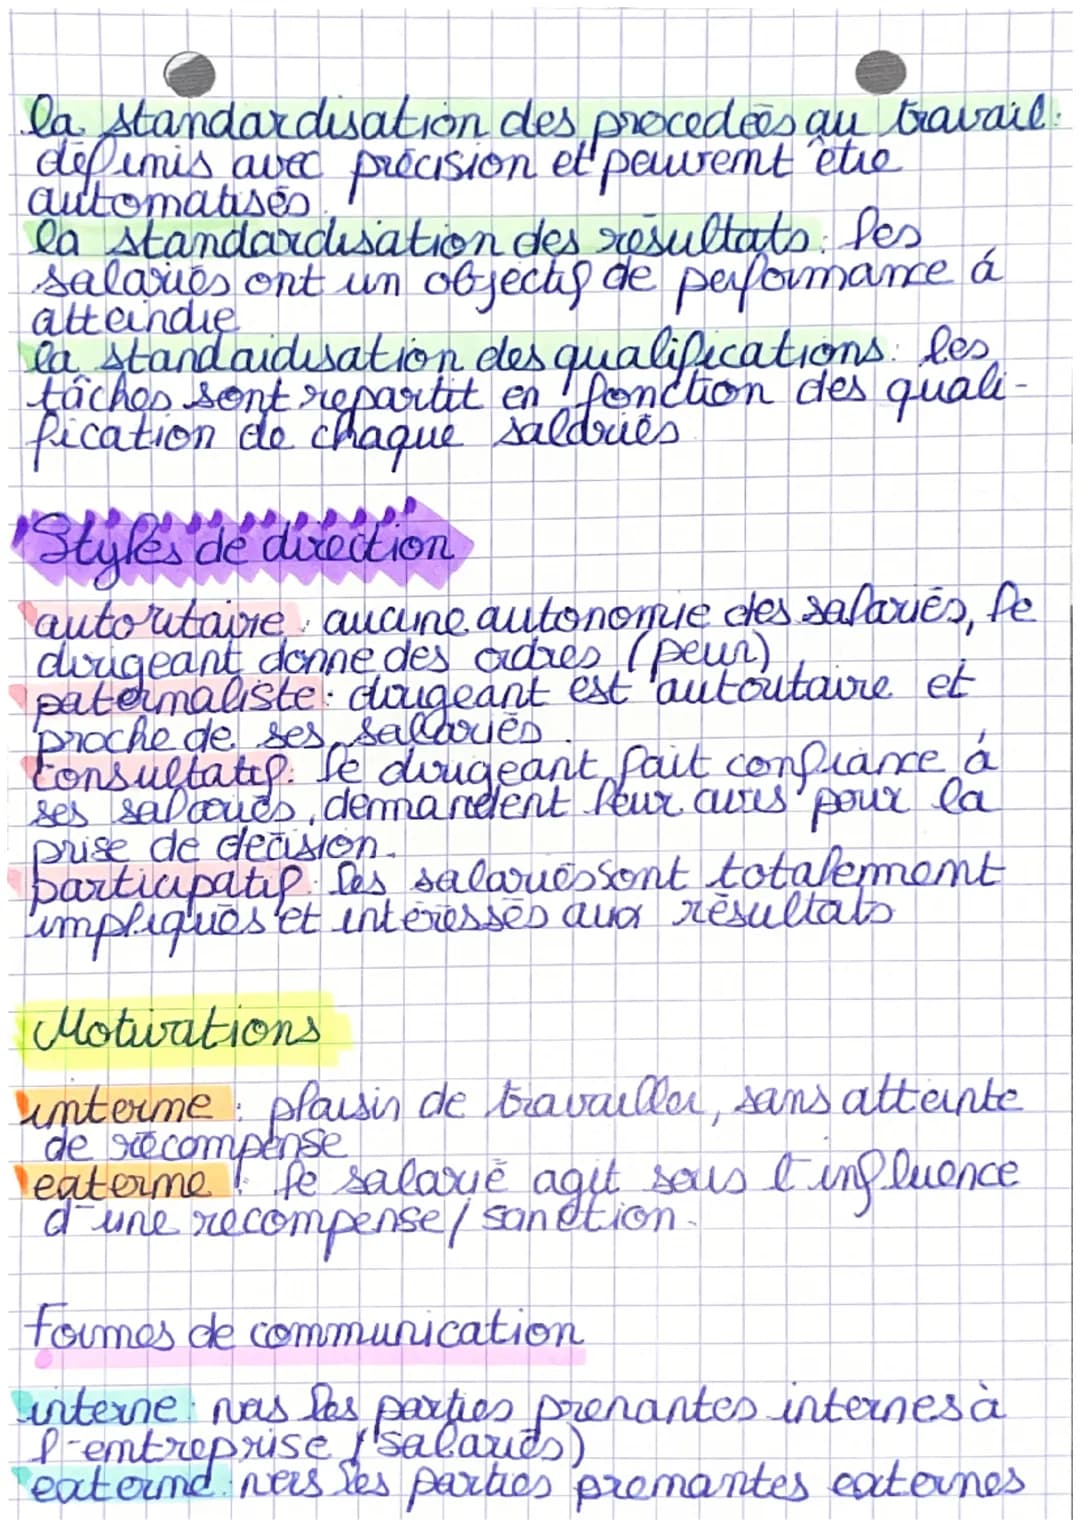 la standardisation des procedées au travail:
définis avec précision et peuvent être
automatisés.
la standardisation des résultats: les
salariés ont un objectif de performance à
atteindre
la standardisation des qualifications: les
tâches sont repartit en fonction des quali-
fication de chaque salariés
Styles de direction
autoritaire: aucune autonomie des salariés, le
dirigeant donne des ordres (peur)
paternaliste: dirigeant est autoritaire et
proche de ses salariés.
consultatif: le dirigeant fait confiance à
ses salariés, demandent leur avis pour la
prise de décision.
participatif: les salariés sont totalement
impliqués et intéressés aux résultats
Motivations
interne: plaisir de travailler, sans atteinte
de récompense
externe: le salarié agit sous l'influence
d'une récompense/sanction.
Formes de communication
interne: vers les parties prenantes internes à
l'entreprise (salariés)
externe: vers les parties prenantes externes